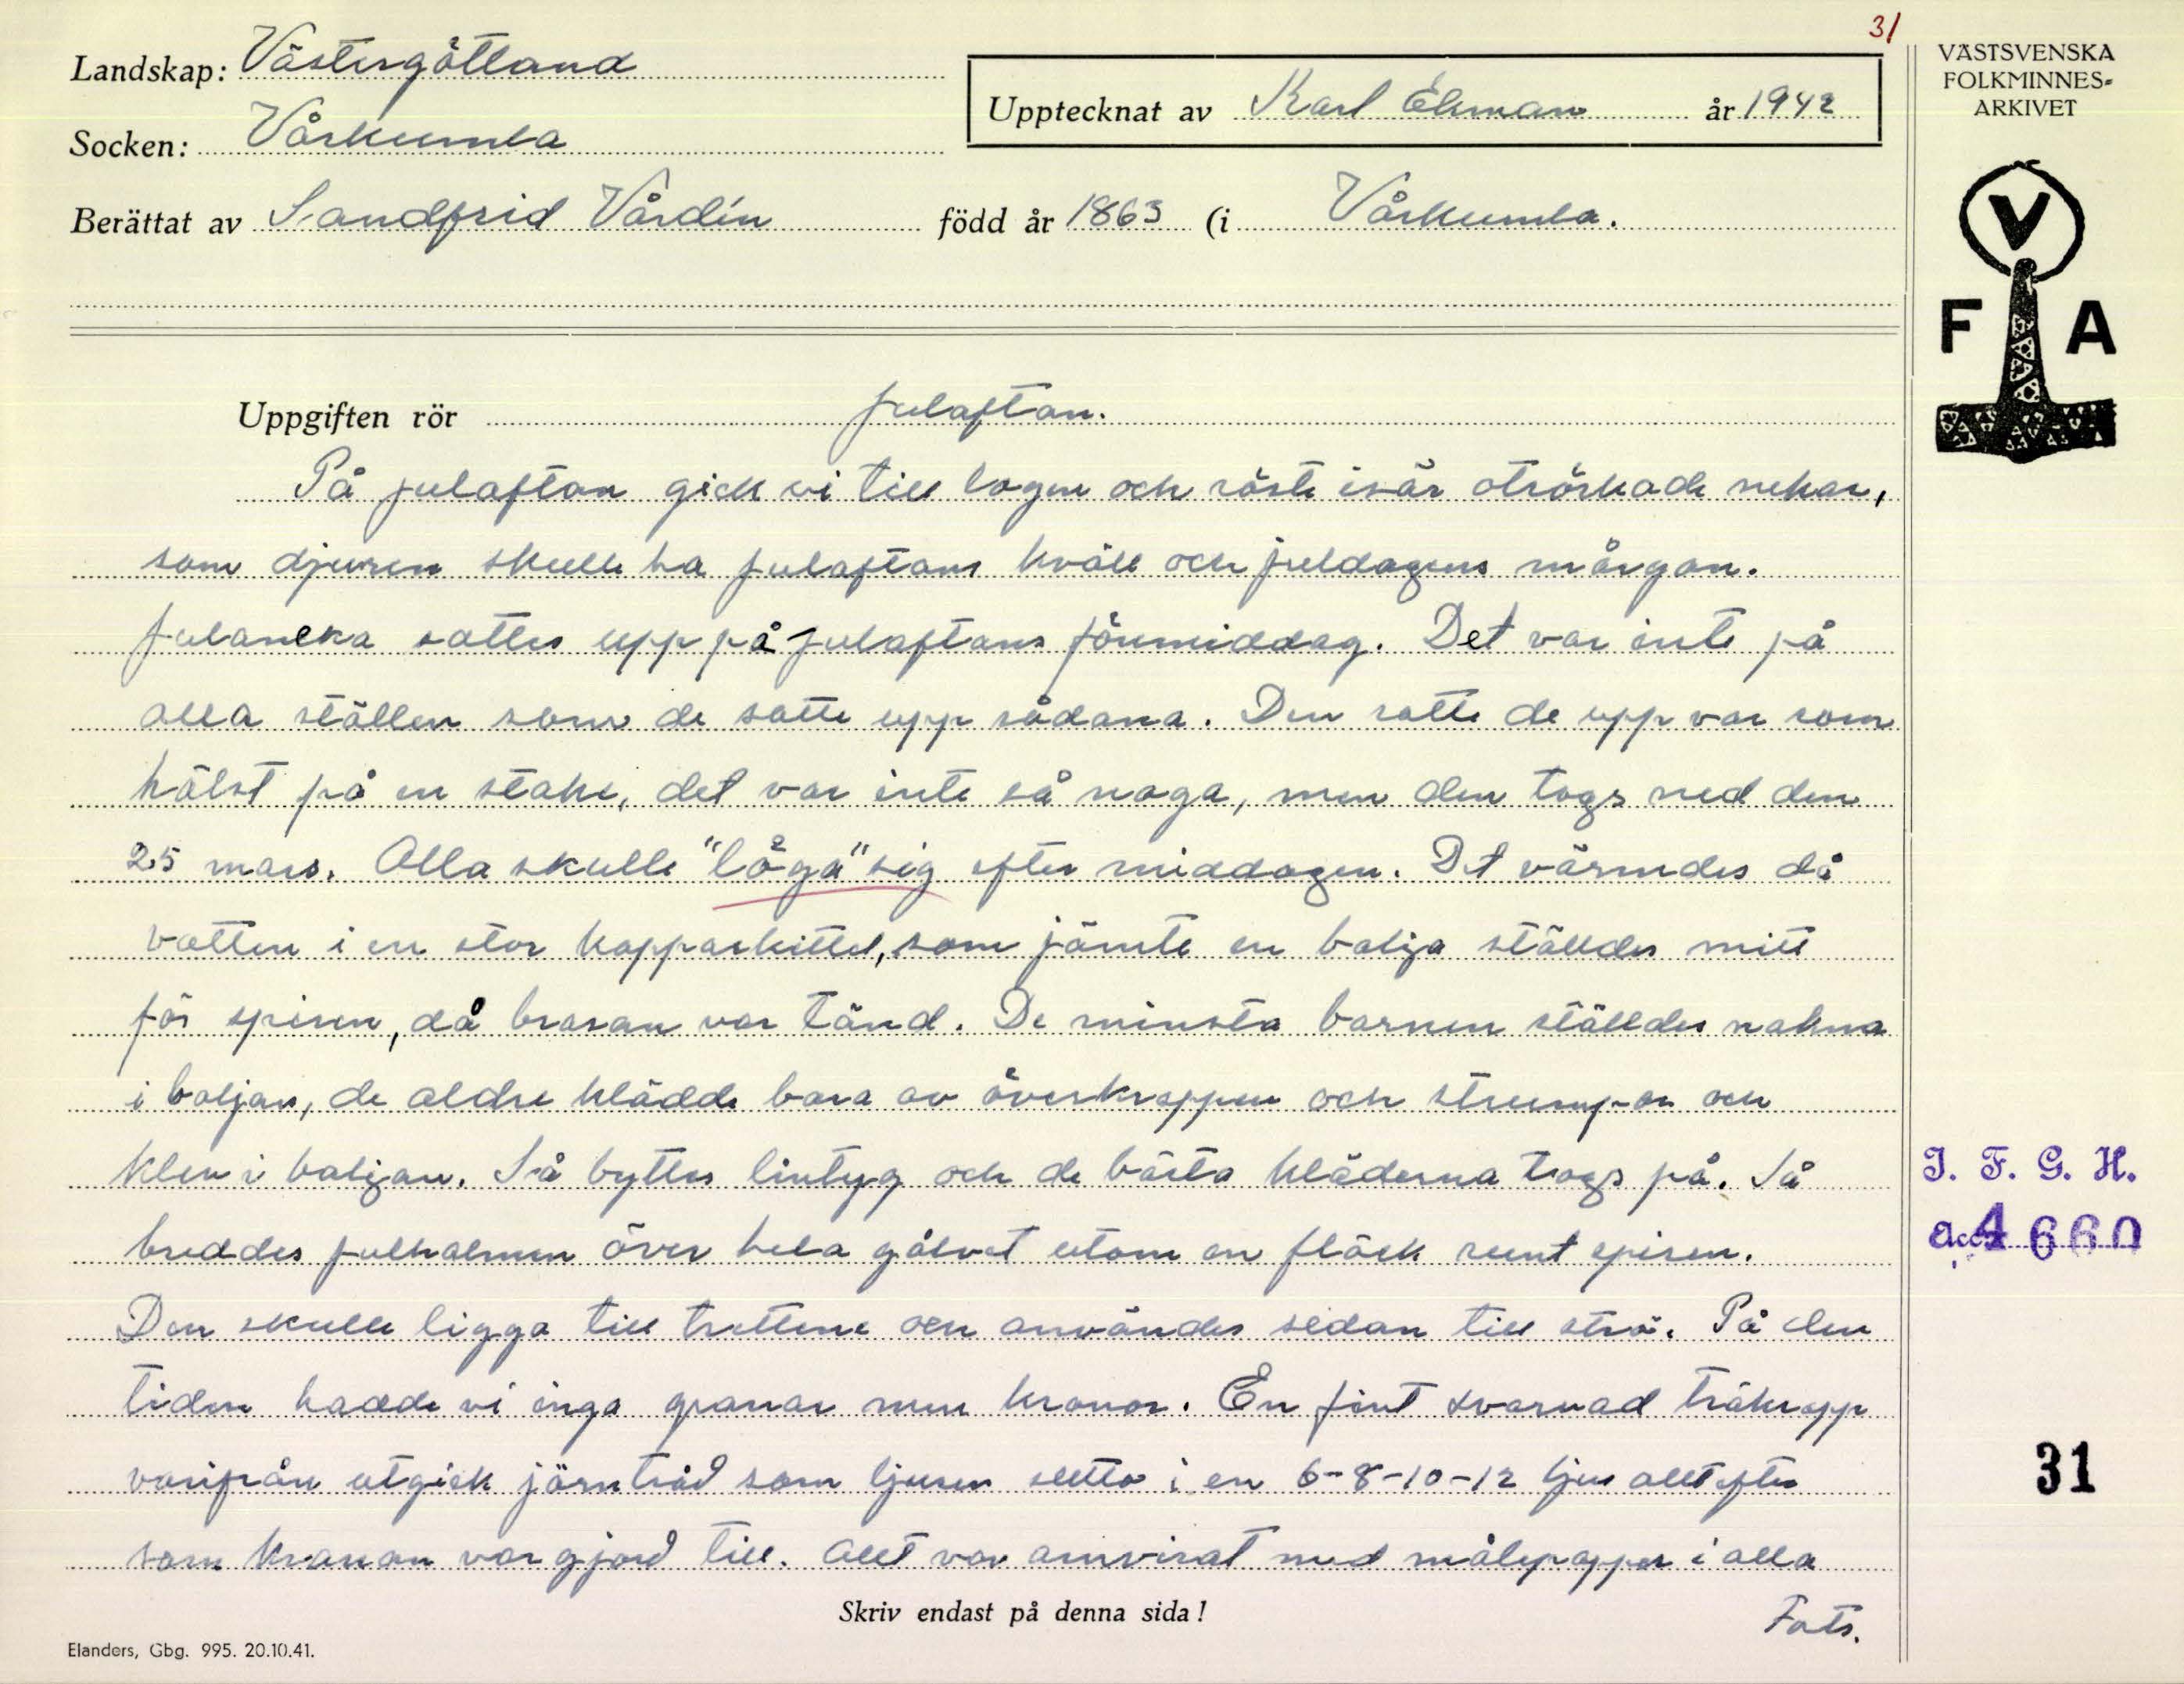 31
Landskap: Västergötland
Socken: Vårkumla
Upptecknat av Karl Ekman år 1942
Berättat av Sandfrid Vårdin född år 1863 (i Vårkumla.
VÄSTSVENSKA
FOLKMINNES-
ARKIVET
V
F A
Uppgiften rör Julaftan.
På julaftan gick vi till logen och röste isär otröskade nekar,
som djuren skulle ha julaftans kväll och juldagens mårgan.
Julaneka sattes upp på julaftans förmiddag. Det var inte på
alla ställen som de satte upp sådana. Den satte de upp var som
hälst på en stake, det var inte så noga, men den togs ned den
25 mars. Alla skulle "löga" sig efter middagen. Det värmdes då
vatten i en stor kopparkittel, som jämte en balja ställdes mitt
för spisen, då brasan var tänd. De minsta barnen ställdes nakna
i baljan, de äldre klädde bara av överkroppen och strumpor och
klev i baljan. Så byttes lintyg och de bästa kläderna togs på. Så
breddes julhalmen över hela gålvet utom en fläck runt spisen.
Den skulle ligga till trettene och användes sedan till strö. På den
tiden hadde vi inga granar men kronor. En fint svarvad träkropp
varifrån utgick järntråd som ljusen sutto i en 6-8-10-12 ljus allt efter
som kronan var gjord till. Allt var omvirat med målepapper i alla
Forts.
Skriv endast på denna sida!
Elanders, Gbg. 995. 20.10.41.
I. F. G. H.
acc. 4660
31